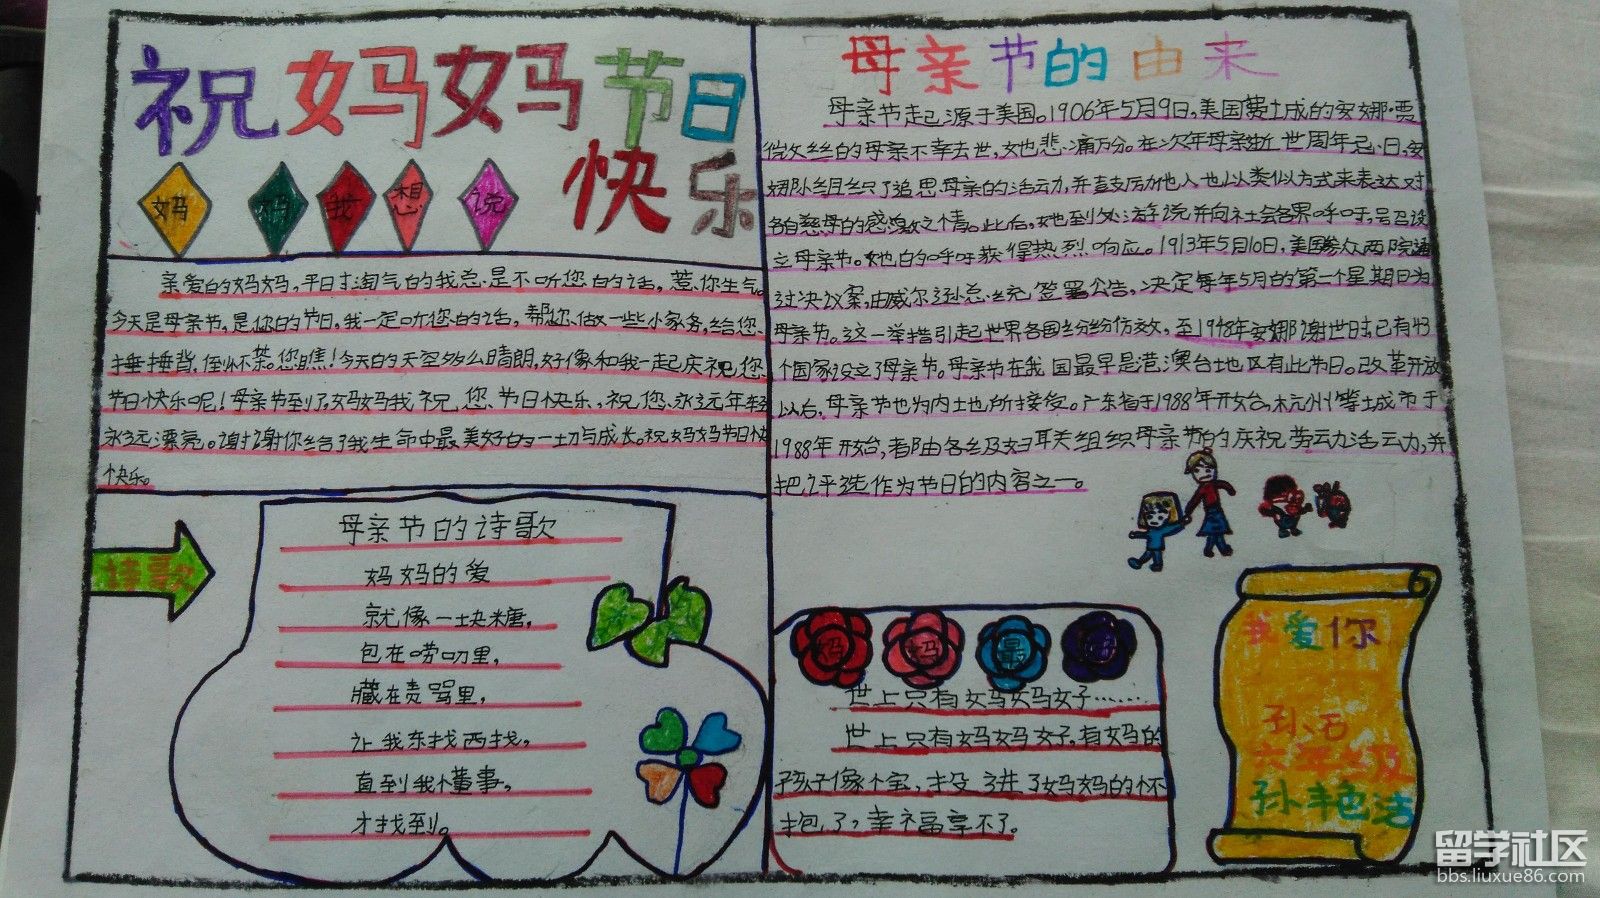 祝妈妈节日
快乐
妈妈我想说
亲爱的妈妈，平日才淘气的我总是不听您的话，惹你生气。
今天是母亲节，是您的节日，我一定听您的话，帮您做一些小家务，给您
捶捶背，倒杯茶。您瞧！今天的天空多么晴朗，好像和我一起庆祝您
节日快乐呢！母亲节到了，妈妈我祝您节日快乐，祝您永远年轻
永远漂亮。谢谢你给了我生命中最美好的一切与成长。祝妈妈节日快
快乐。
诗歌
母亲节的诗歌
妈妈的爱
就像一块糖，
包在唠叨里，
藏在责骂里，
让我东找西找，
直到我懂事，
才找到。
母亲节的由来
母亲节起源于美国。1906年5月9日，美国费城的安娜·贾
维丝的母亲不幸去世，她悲痛万分。在次年母亲逝世周年忌日，安
娜队组织了追思母亲的活动，并鼓励他人也以类似方式来表达对
各自慈母的感激之情。此后，她到处游说并向社会各界呼吁，号召设
立母亲节。她的呼吁获得热烈响应。1913年5月10日，美国参众两院通
过决议案，由威尔逊总统签署公告，决定每年5月的第二个星期日为
母亲节。这一举措引起世界各国纷纷仿效，至1948年安娜谢世时，已有43
个国家设立了母亲节。母亲节在我国最早是港澳台地区有此节日。改革开放
以后，母亲节也为内土地所接受。广东省于1988年开始，杭州等城市于
1988年开始，都由各级妇联关组织母亲节的庆祝劳动活动，并
把评选作为节日的内容之一。
妈妈最
世上只有妈妈好……
世上只有妈妈好，有妈的
孩子像个宝，投进了妈妈的怀
抱了，幸福享不了。
我爱你
六年级
孙艳洁
留学社区
bbs.liuxue86.com